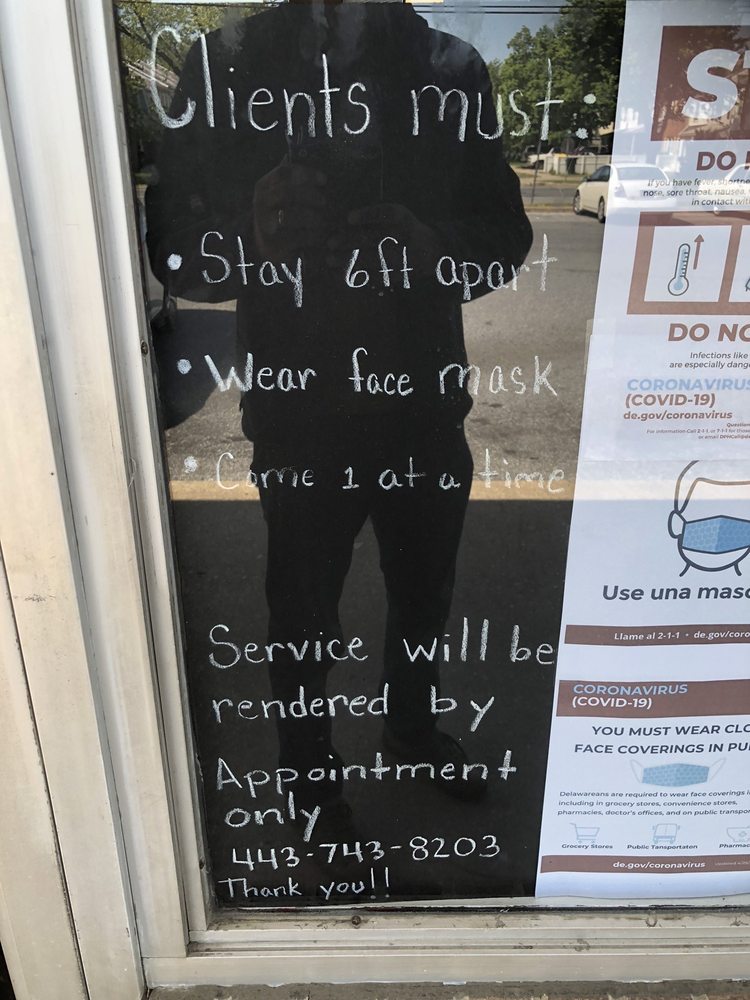 Clients must:
• Stay 6ft apart
• Wear face mask
• Come 1 at a time
Service will be
rendered by
Appointment
only
443-743-8203
Thank you!!
DO
If you have fever,
nose, sore throat, nausea,
in contact
DO
Infections like
are especially
CORONAVIRUS
(COVID-19)
de.gov/coronavirus
Use una
Llame al 2-1-1 •
CORONAVIRUS
(COVID-19)
YOU MUST WEAR
FACE COVERINGS IN
Delawareans are required to wear face coverings
including in grocery stores, convenience stores,
pharmacies, doctor's offices, and on public
Grocery Stores
Public Transportaton
de.gov/coronavirus